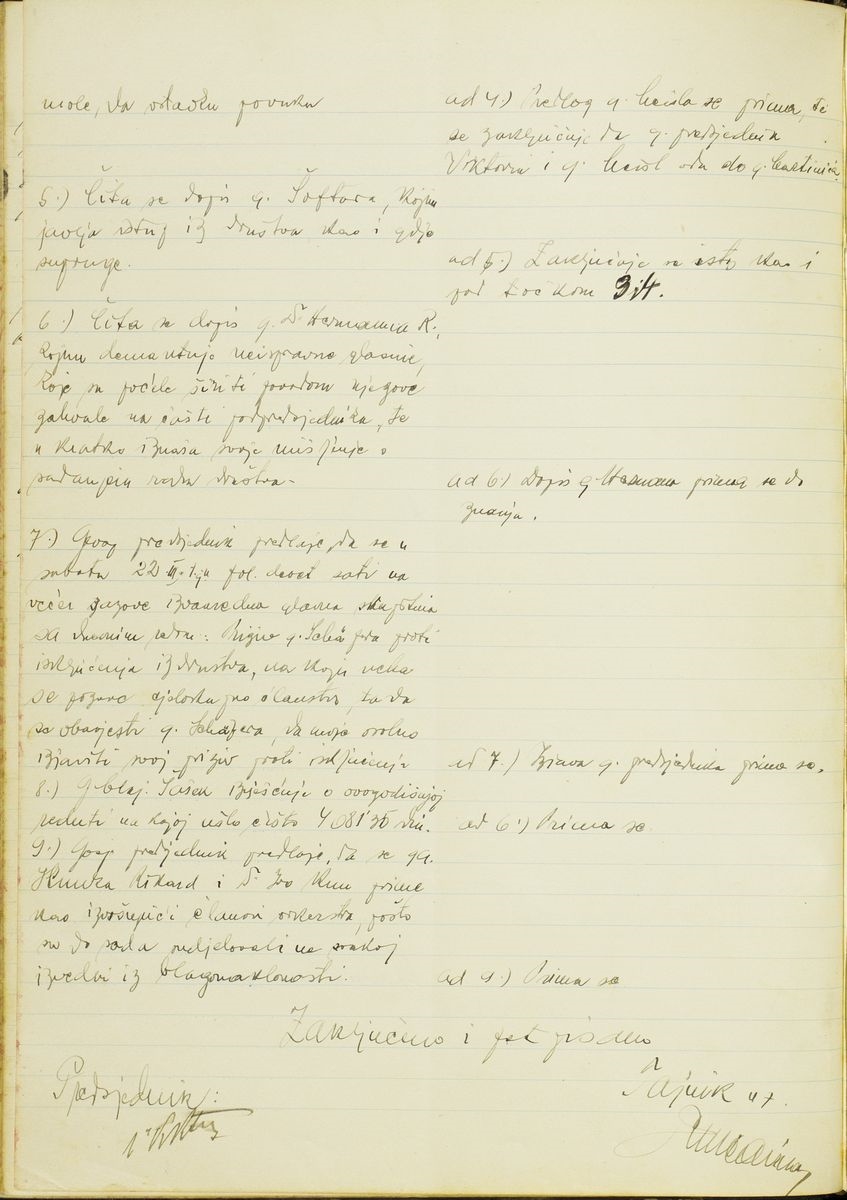 mole, da ostavku povuku
5.) Čita se dopis g. Šoftara, kojim
javlja istup iz društva kao i gdje
supruge.
6.) Čita se dopis g. Dr Hermanna R.,
kojim demantuje neispravne glasine,
koje su počele širiti povodom njegove
zahvale na časti podpredsjednika, te
u kratko iznaša svoje mišljenje o
sadanjem radu društva.
7.) Gosp predsjednik predlaže, da se u
subotu 22 III. t.g. u devet sati na
večer sazove izvanredna glavna skupština
sa dnevnim redom: Priziv g. Schäfera proti
isključenja iz društva, na koju neka
se pozove cjelokupno članstvo, ta da
se obavjesti g. Schäfera, da može osobno
izjaviti svoj priziv proti isključenja
8.) G blag. Sušek izješćuje o ovogodišnjoj
reduti na kojoj ušlo čisto 4081 30 din.
9.) Gosp predsjednik predlaže, da se gg.
Rikard i Dr. Ivo Kun prime
kao izvršujući članovi orkestra, pošto
su do sada sudjelovali na svakoj
izvedbi iz blagonaklonosti.
ad 4.) Predlog g. se prima, te
se zaključuje da g. predsjednik
Viktorin i g. odu do g.
ad 5.) Zaključuje se isto kao i
pod točkom 3 i 4.
ad 6.) Dopis g Hermanna prima se do
znanja.
ad 7.) Izjava g. predsjednika prima se.
ad 6.) Prima se.
ad 9.) Prima se
Zaključeno i potpisano
Predsjednik:
Tajnik